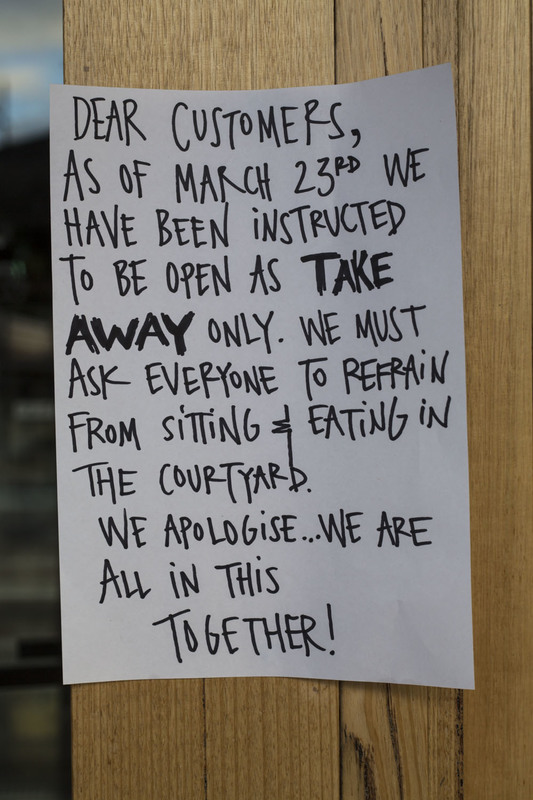 DEAR CUSTOMERS,
AS OF MARCH 23RD WE
HAVE BEEN iNSTRUCTED
TO BE OPEN AS TAKE
AWAY ONLY. WE MUST
ASK EVERYONE TO REFRAiN
FROM SiTTiNG & EATiNG iN
THE COURTYARD.
WE APOLOGiSE...WE ARE
ALL iN THiS
TOGETHER!